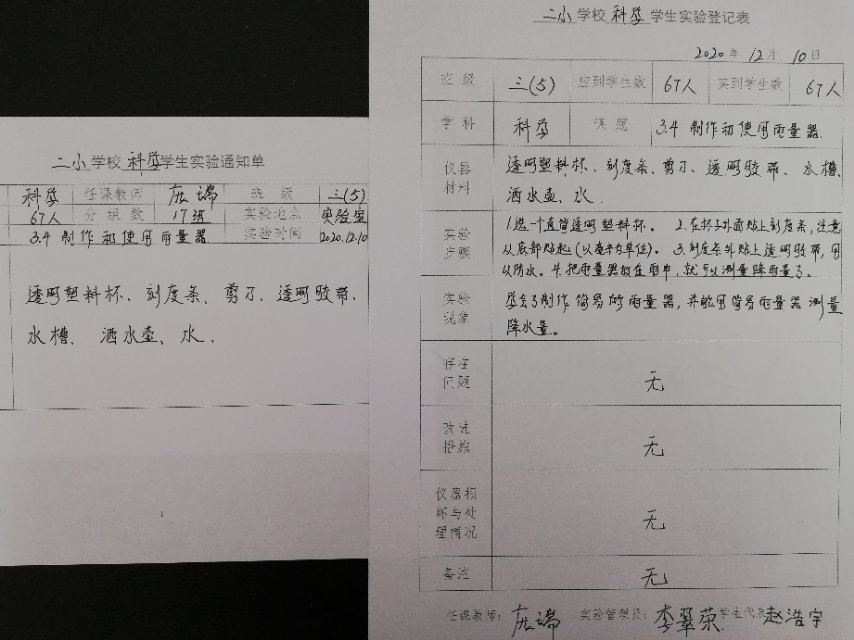 二小学校科学学生实验通知单
科学 任课教师 庞端 班级 三(5)
67人 分组数 17组 实验地点 实验室
3.4 制作和使用雨量器 实验时间 2020.12.10
透明塑料杯、刻度条、剪刀、透明胶带、
水槽、洒水壶、水.
二小学校科学学生实验登记表
2020年12月10日
班级 三(5) 应到学生数 67人 实到学生数 67人
学科 科学 课题 3.4 制作和使用雨量器
仪器
材料
透明塑料杯、刻度条、剪刀、透明胶带、水槽、
洒水壶、水.
实验
步骤
1.选一个直筒透明塑料杯。 2.在杯子外面贴上刻度条,注意
从底部贴起(以毫米为单位)。 3.刻度条外贴上透明胶带,用
以防水。4.把雨量器放在雨中,就可以测量降雨量了。
实验
现象
学会了制作简易的雨量器,并能用简易雨量器测量
降水量。
存在
问题
无
改进
措施
无
仪器损
坏与处
理情况
无
备注 无
任课教师:庞端 实验管理员:李翠荣 学生代表 赵浩宇